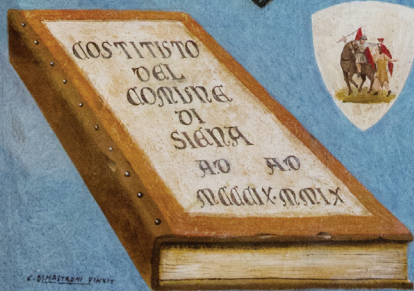 COSTITUTO
DEL
COMUNE
DI
SIENA
AD AD
MCCCIX·MMIX
C. DIMASTRONI PINXIT